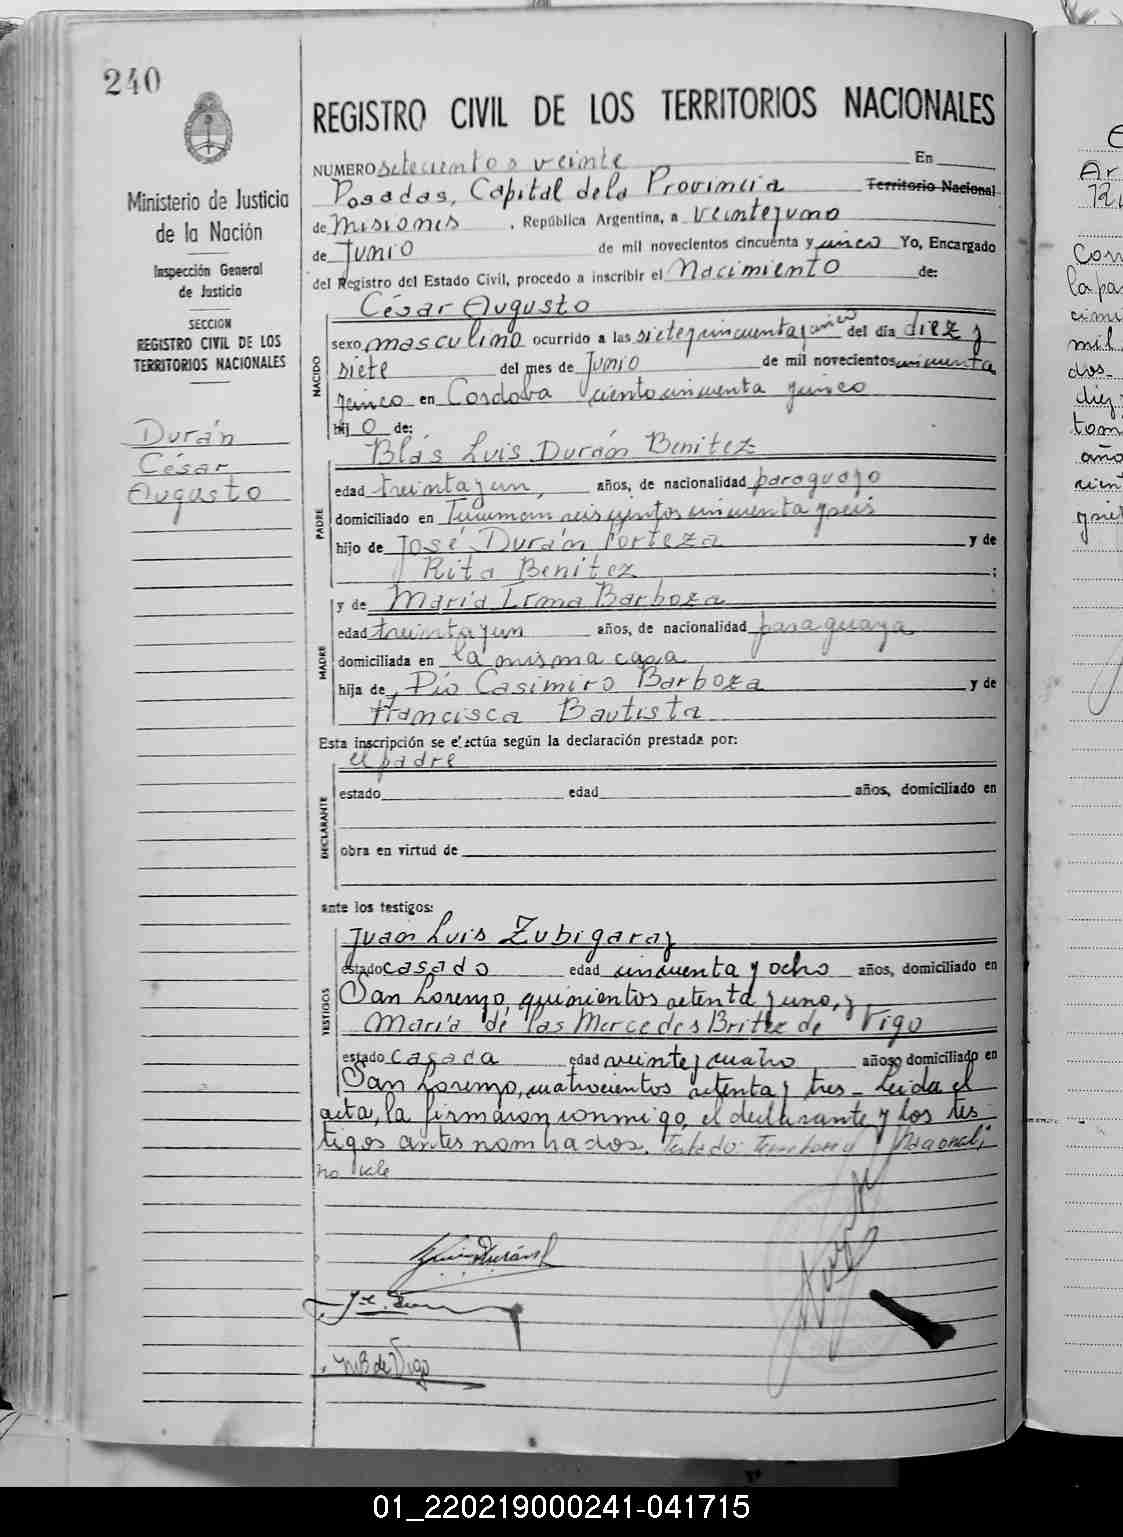 240
Ministerio de Justicia
de la Nación
Inspección General
de Justicia
SECCION
REGISTRO CIVIL DE LOS
TERRITORIOS NACIONALES
Durán
César
Augusto
REGISTRO CIVIL DE LOS TERRITORIOS NACIONALES
NUMERO setecientos veinte En
Posadas, Capital de la Provincia Territorio Nacional
de Misiones, República Argentina, a veinteyuno
de Junio de mil novecientos cincuenta y cinco Yo, Encargado
del Registro del Estado Civil, procedo a inscribir el Nacimiento de:
César Augusto
NACIDO
sexo masculino ocurrido a las sieteycincuentaycinco del día diez y
siete del mes de Junio de mil novecientos cincuenta
ycinco en Córdoba cientocincuenta ycinco
hij o de:
Blás Luis Durán Benitez
PADRE
edad treintayun, años, de nacionalidad paraguayo
domiciliado en Tucuman seiscientos cincuenta yseis
hijo de José Durán Porteza y de
Rita Benitez;
y de María Irma Barboza
MADRE
edad treintayun años, de nacionalidad paraguaya
domiciliada en la misma casa
hija de Pío Casimiro Barboza y de
Francisca Bautista
Esta inscripción se efectúa según la declaración prestada por:
el padre
DECLARANTE
estado edad años, domiciliado en
obra en virtud de
ante los testigos:
Juan Luis Zubigaray
TESTIGOS
estado casado edad cincuenta y ocho años, domiciliado en
San Lorenzo, quinientos setenta yuno, y
María de las Mercedes Britez de Vigo
estado casada edad veinteycuatro años, domiciliado en
San Lorenzo, cuatrocientos setenta y tres_ Leida el
acta, la firmaron conmigo, el declarante y los tes-
tigos antes nombrados. Testado: Territorio Nacional;
no vale
M B de Vigo
Con
la pa
mil
dos-
diez
tom
año
01_220219000241-041715